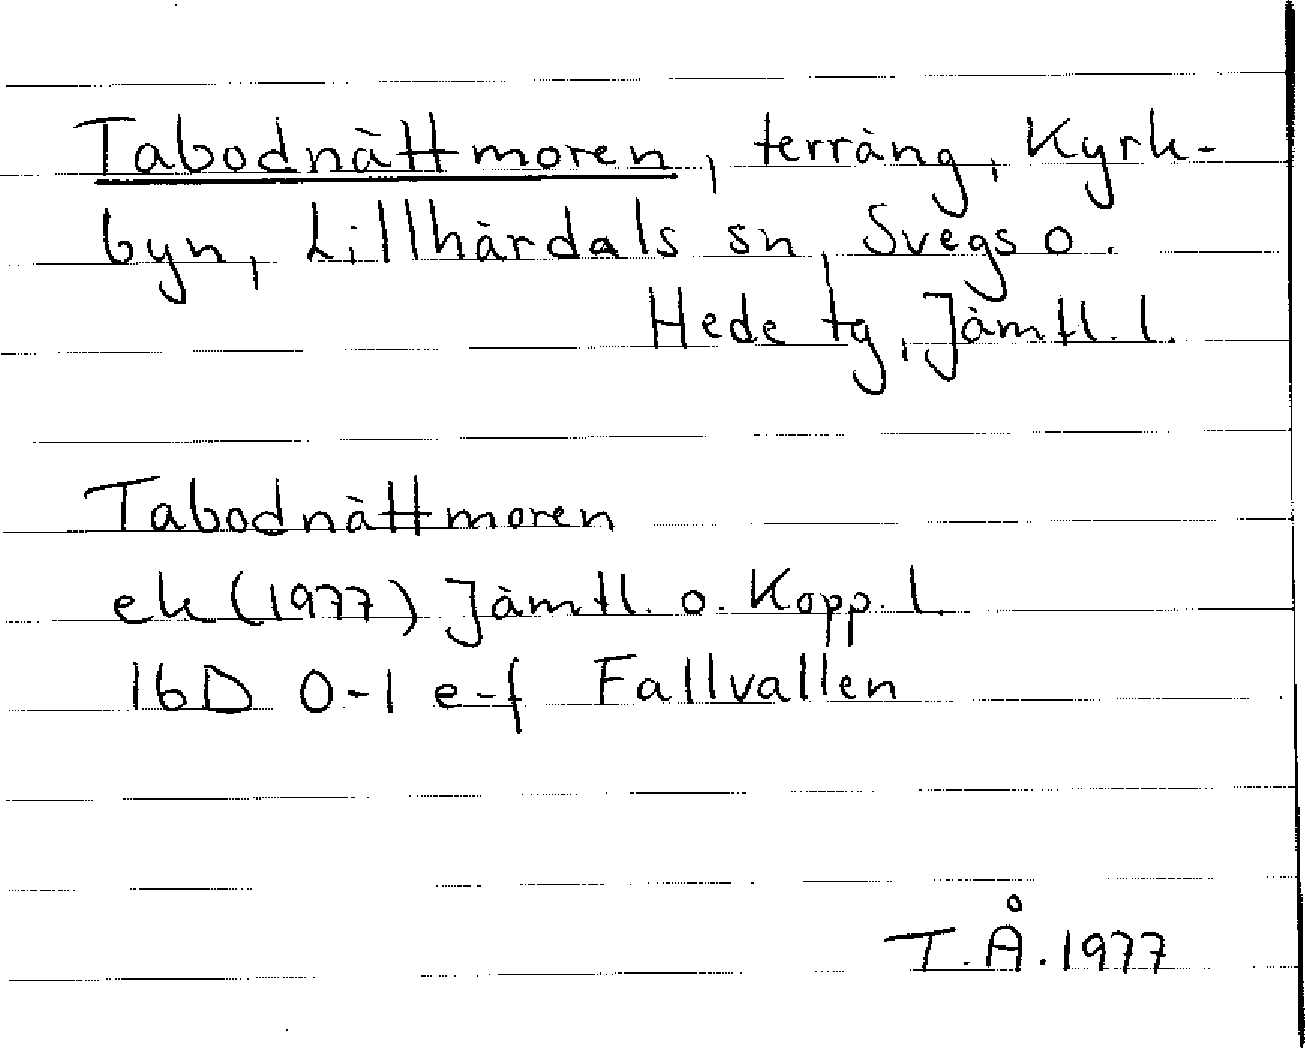 Tabodnättmoren, terräng, Kyrk-
byn, Lillhärdals sn, Svegs o.
Hede tg, Jämtl. l.
Tabodnättmoren
ek (1977) Jämtl. o. Kopp. l.
16D 0-1 e-f Fallvallen
T.Å. 1977